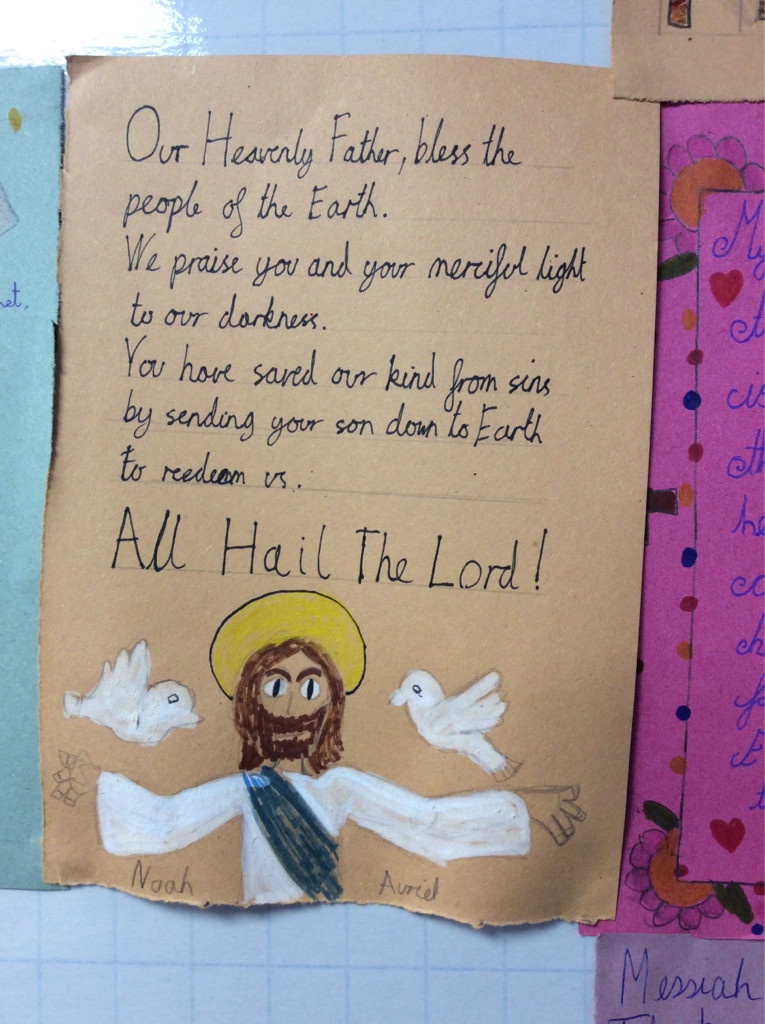 Our Heavenly Father, bless the
people of the Earth.
We praise you and your merciful light
to our darkness.
You have saved our kind from sins
by sending your son down to Earth
to reedeem us.
All Hail The Lord!
Noah
Avriel
My
het.
Messiah